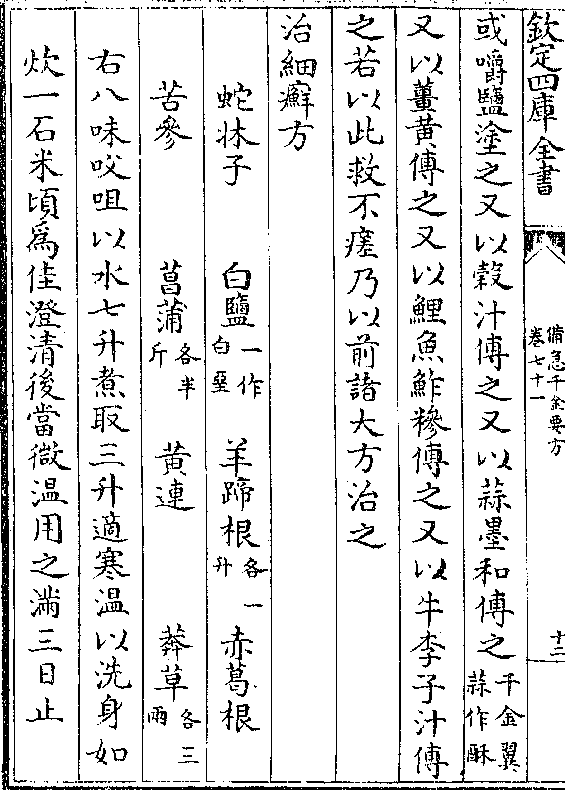 欽定四庫全書
備急千金要方
卷七十一
十二
或嚼鹽塗之又以穀汁傅之又以蒜墨和傅之千金翼蒜作酥
又以薑黄傅之又以鯉魚鮓糝傅之又以牛李子汁傅
之若以此救不瘥乃以前諸大方治之
治細癬方
蛇牀子 白鹽一作白堊 羊蹄根各一升 赤葛根
苦參 菖蒲各半斤 黄連 莽草各三兩
右八味㕮咀以水七升煮取三升適寒温以洗身如
炊一石米頃爲佳澄清後當微温用之滿三日止